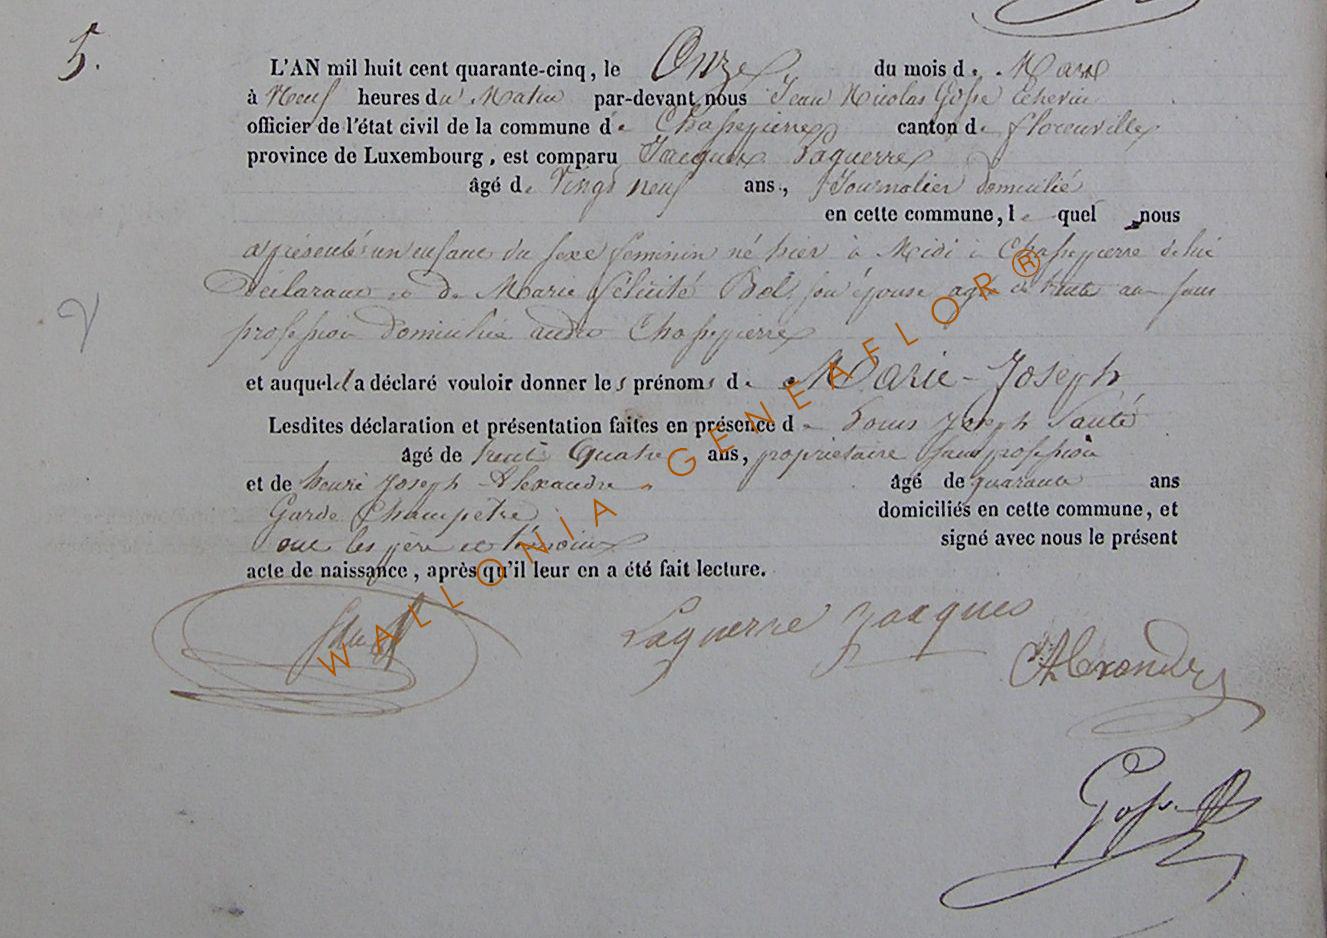 5.
L'AN mil huit cent quarante-cinq, le Onze du mois de Mars
à Neuf heures du Matin par-devant nous Jean Nicolas Gosse Echevin
officier de l'état civil de la commune de Chassepierre canton de florenville
province de Luxembourg, est comparu Jacques Laguerre
âgé de Vingt neuf ans, Journalier domicilié
en cette commune, lequel nous
a présenté un enfant du sexe feminin né hier à Midi à Chassepierre de lui
Déclarant et de Marie félicité son épouse agée de trente ans sans
profession domiciliée audit Chassepierre
et auquel il a déclaré vouloir donner les prénoms de Marie-Joseph
Lesdites déclaration et présentation faites en présence de Louis Joseph
âgé de trente Quatre ans, propriétaire sans profession
et de henri Joseph Alexandre âgé de quarante ans
Garde Champetre domiciliés en cette commune, et
ont les père et témoins signé avec nous le présent
acte de naissance, après qu'il leur en a été fait lecture.
Laguerre Jacques
Alexandre
Gosse
WALLONIA-GENEAFLOR®